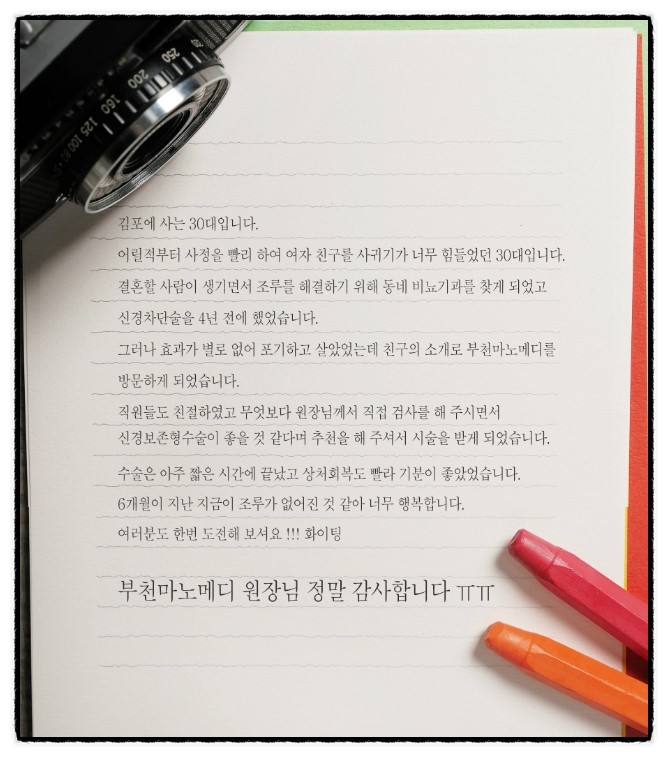 250
200
160
125
100
김포에 사는 30대입니다.
어릴적부터 사정을 빨리 하여 여자 친구를 사귀기가 너무 힘들었던 30대입니다.
결혼할 사람이 생기면서 조루를 해결하기 위해 동네 비뇨기과를 찾게 되었고
신경차단술을 4년 전에 했었습니다.
그러나 효과가 별로 없어 포기하고 살았었는데 친구의 소개로 부천마노메디를
방문하게 되었습니다.
직원들도 친절하였고 무엇보다 원장님께서 직접 검사를 해 주시면서
신경보존형수술이 좋을 것 같다며 추천을 해 주셔서 시술을 받게 되었습니다.
수술은 아주 짧은 시간에 끝났고 상처회복도 빨라 기분이 좋았었습니다.
6개월이 지난 지금이 조루가 없어진 것 같아 너무 행복합니다.
여러분도 한번 도전해 보셔요 !!! 화이팅
부천마노메디 원장님 정말 감사합니다 ㅠㅠ